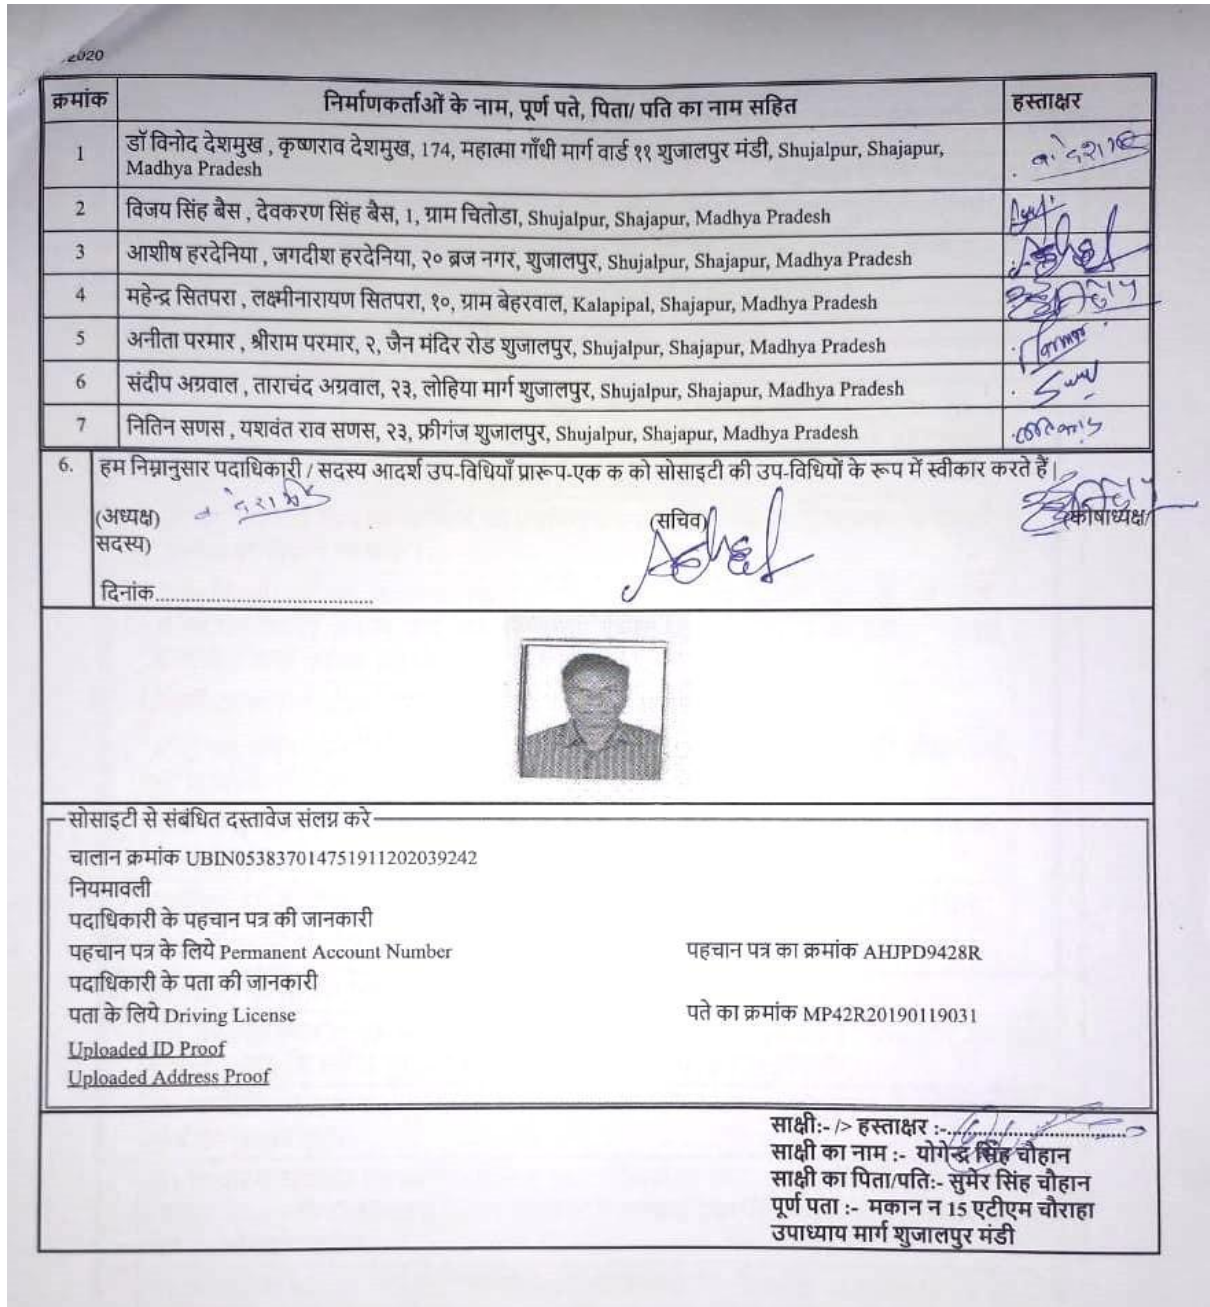 2020
क्रमांक निर्माणकर्ताओं के नाम, पूर्ण पते, पिता/ पति का नाम सहित हस्ताक्षर
1 डॉ विनोद देशमुख , कृष्णराव देशमुख, 174, महात्मा गाँधी मार्ग वार्ड ११ शुजालपुर मंडी, Shujalpur, Shajapur,
Madhya Pradesh
2 विजय सिंह बैस , देवकरण सिंह बैस, 1, ग्राम चितोडा, Shujalpur, Shajapur, Madhya Pradesh
3 आशीष हरदेनिया , जगदीश हरदेनिया, २० ब्रज नगर, शुजालपुर, Shujalpur, Shajapur, Madhya Pradesh
4 महेन्द्र सितपरा , लक्ष्मीनारायण सितपरा, १०, ग्राम बेहरवाल, Kalapipal, Shajapur, Madhya Pradesh
5 अनीता परमार , श्रीराम परमार, २, जैन मंदिर रोड शुजालपुर, Shujalpur, Shajapur, Madhya Pradesh
6 संदीप अग्रवाल , ताराचंद अग्रवाल, २३, लोहिया मार्ग शुजालपुर, Shujalpur, Shajapur, Madhya Pradesh
7 नितिन सणस , यशवंत राव सणस, २३, फ्रीगंज शुजालपुर, Shujalpur, Shajapur, Madhya Pradesh
6. हम निम्नानुसार पदाधिकारी / सदस्य आदर्श उप-विधियाँ प्रारूप-एक क को सोसाइटी की उप-विधियों के रूप में स्वीकार करते हैं|
(अध्यक्ष) (सचिव) (कोषाध्यक्ष/
सदस्य)
दिनांक.......................................
सोसाइटी से संबंधित दस्तावेज संलग्न करे
चालान क्रमांक UBIN053837014751911202039242
नियमावली
पदाधिकारी के पहचान पत्र की जानकारी
पहचान पत्र के लिये Permanent Account Number पहचान पत्र का क्रमांक AHJPD9428R
पदाधिकारी के पता की जानकारी
पता के लिये Driving License पते का क्रमांक MP42R20190119031
Uploaded ID Proof
Uploaded Address Proof
साक्षी:- /> हस्ताक्षर :-................................
साक्षी का नाम :- योगेन्द्र सिंह चौहान
साक्षी का पिता/पति:- सुमेर सिंह चौहान
पूर्ण पता :- मकान न 15 एटीएम चौराहा
उपाध्याय मार्ग शुजालपुर मंडी